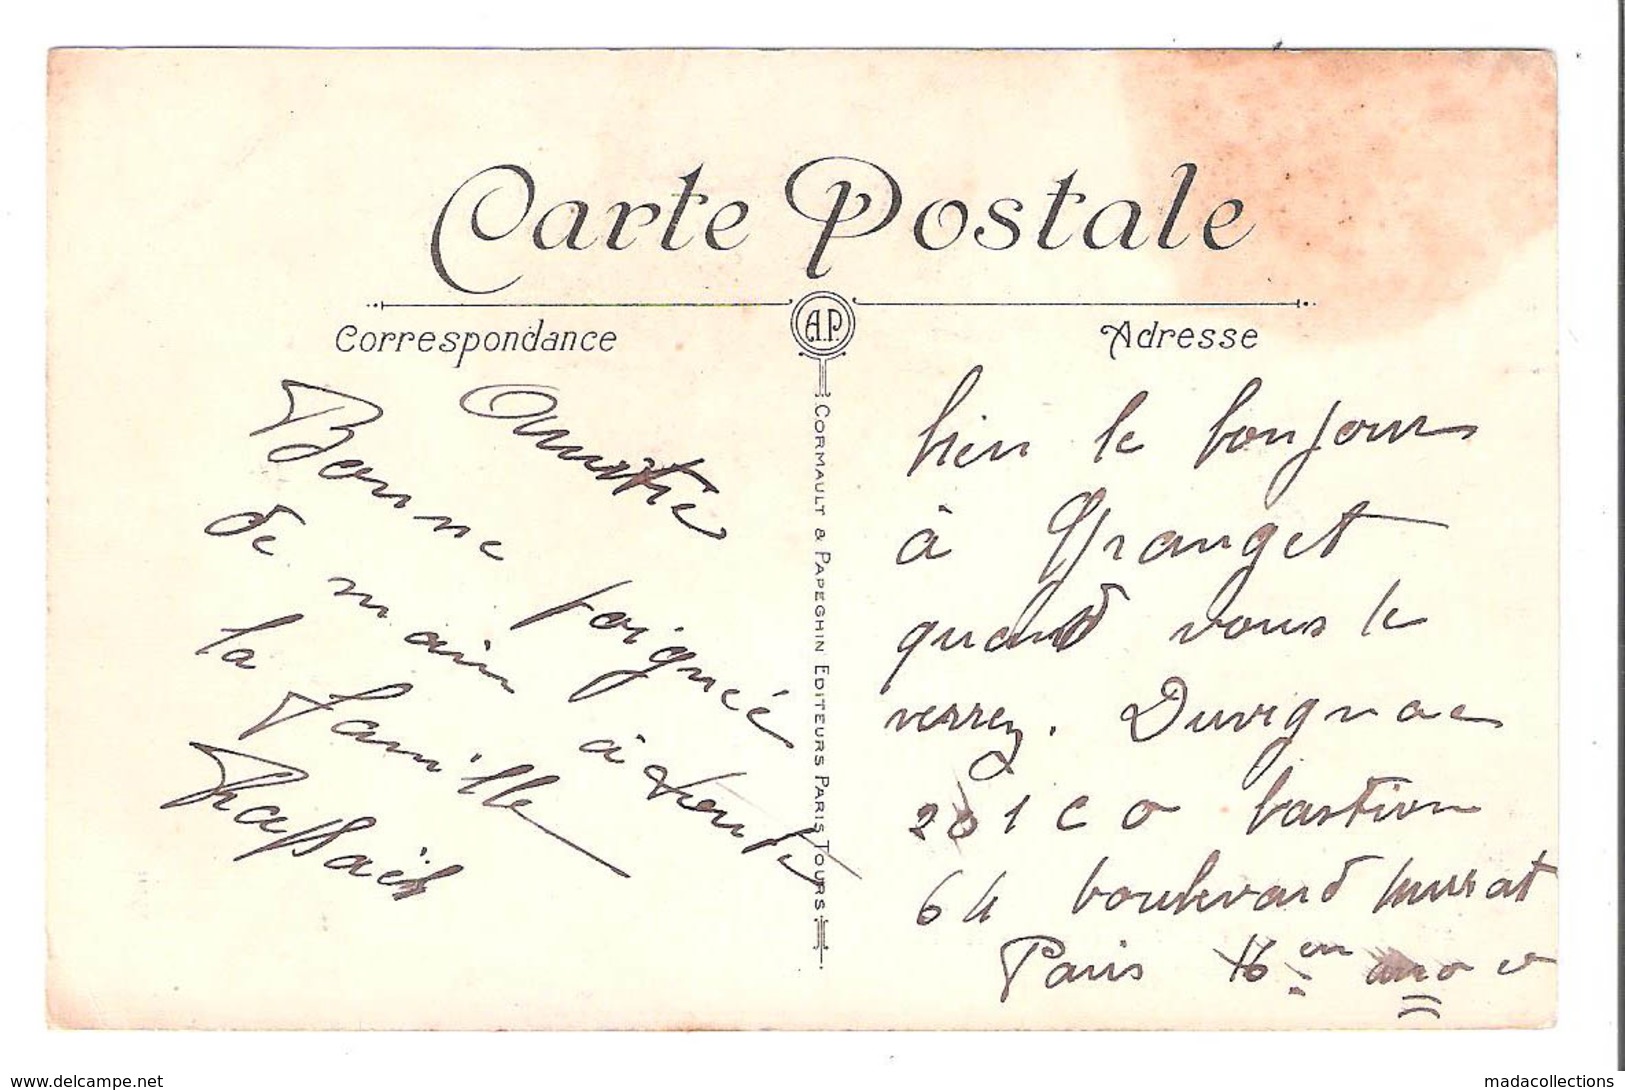 Carte Postale
Correspondance
Adresse
A.P.
CORMAULT & PAPEGHIN EDITEURS PARIS TOURS
Amitie
Bonne poignéé
de main à toute
la famille
bien le bonjour
à Granget
quand vous le
verrez. Duvignac
201 c o bastion
64 boulevard murat
Paris 16 em
www.delcampe.net
madacollections